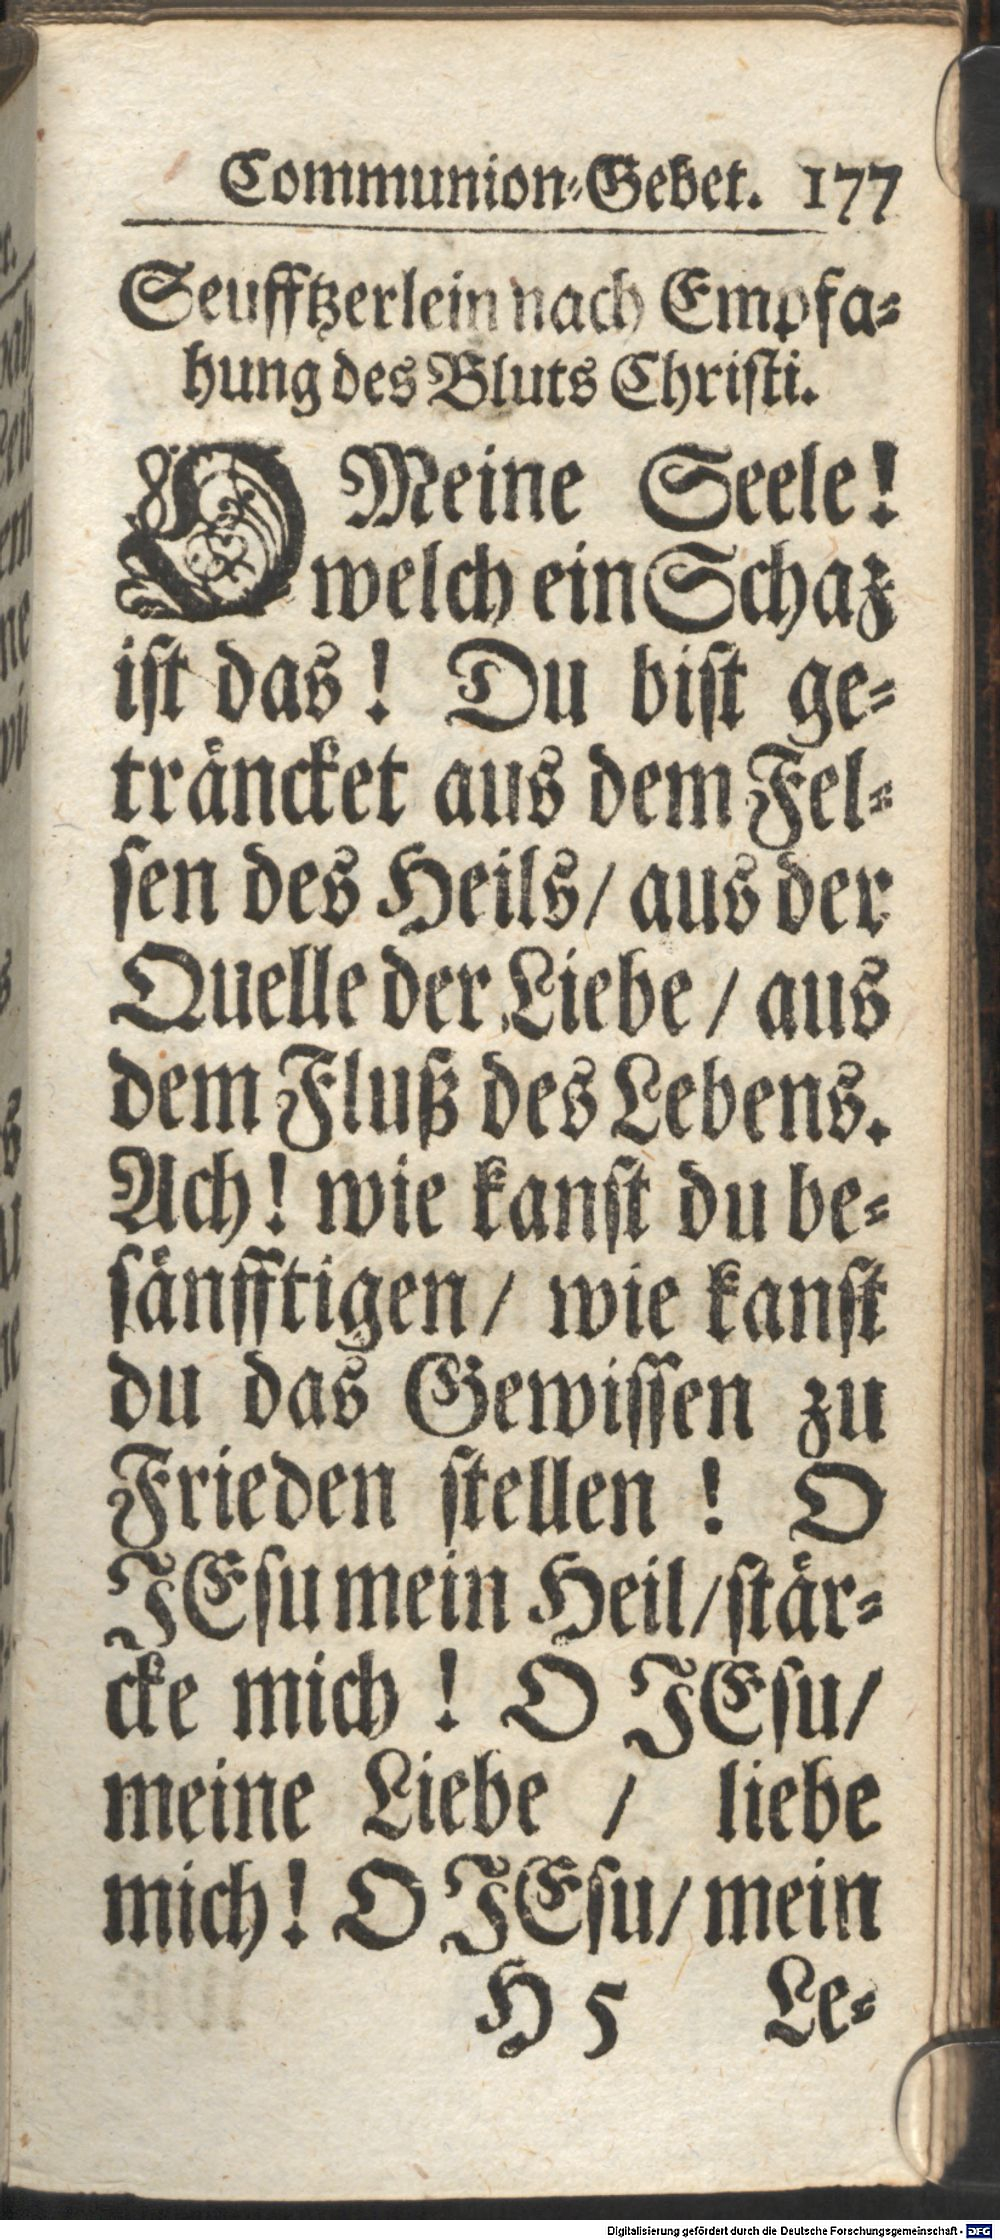 Communion-Gebet. 177
Seufftzerlein nach Empfa-
hung des Bluts Christi.
O Meine Seele!
welch ein Schaz
ist das! Du bist ge-
träncket aus dem Fel-
sen des Heils/ aus der
Quelle der Liebe / aus
dem Fluß des Lebens.
Ach! wie kanst du be-
sänfftigen/ wie kanst
du das Gewissen zu
Frieden stellen ! O
JEsu mein Heil/ stär-
cke mich ! O JEsu/
meine Liebe / liebe
mich! O JEsu/ mein
H 5 Le-
Digitalisierung gefördert durch die Deutsche Forschungsgemeinschaft - DFG